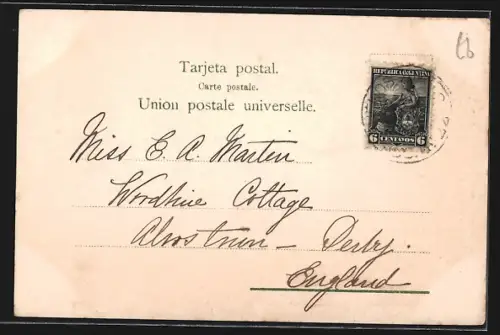 Tarjeta postal.
Carte postale.
Union postale universelle.
REPUBLICA ARGENTINA
6 CENTAVOS 6
Miss E. A. Martin
Cottage
Derby.
England